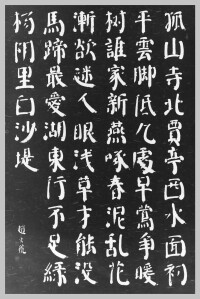 孤山寺北賈亭西水面初
平雲脚低几處早鶯爭暖
树誰家新燕啄春泥乱花
漸欲迷人眼浅草才能没
馬蹄最愛湖東行不足緑
杨阴里白沙堤